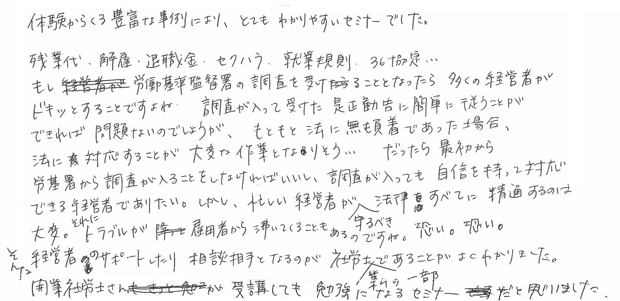 体験からくる豊富な事例により、とてもわかりやすいセミナーでした。
残業代・解雇・退職金・セクハラ・就業規則・36協定…
もし労働基準監督署の調査を受けることとなったら 多くの経営者が
ドキッとすることですよね。調査が入って受けた是正勧告に簡単に従うことが
できれば問題ないのでしょうが、もともと法に無頓着であった場合、
法に対応することが大変な作業となりそう… だったら最初から
労基署から調査が入ることをしなければいいし、調査が入っても自信を持って対応
できる経営者でありたい。しかし、忙しい経営者が守るべき法律すべてに精通するのは
大変。それにトラブルが雇用者から沸いてくることもあるのですね。恐い。恐い。
そんな経営者のサポートしたり相談相手となるのが社労士であることがよくわかりました。
開業社労士さんが受講しても勉強になるセミナーだと思いました。